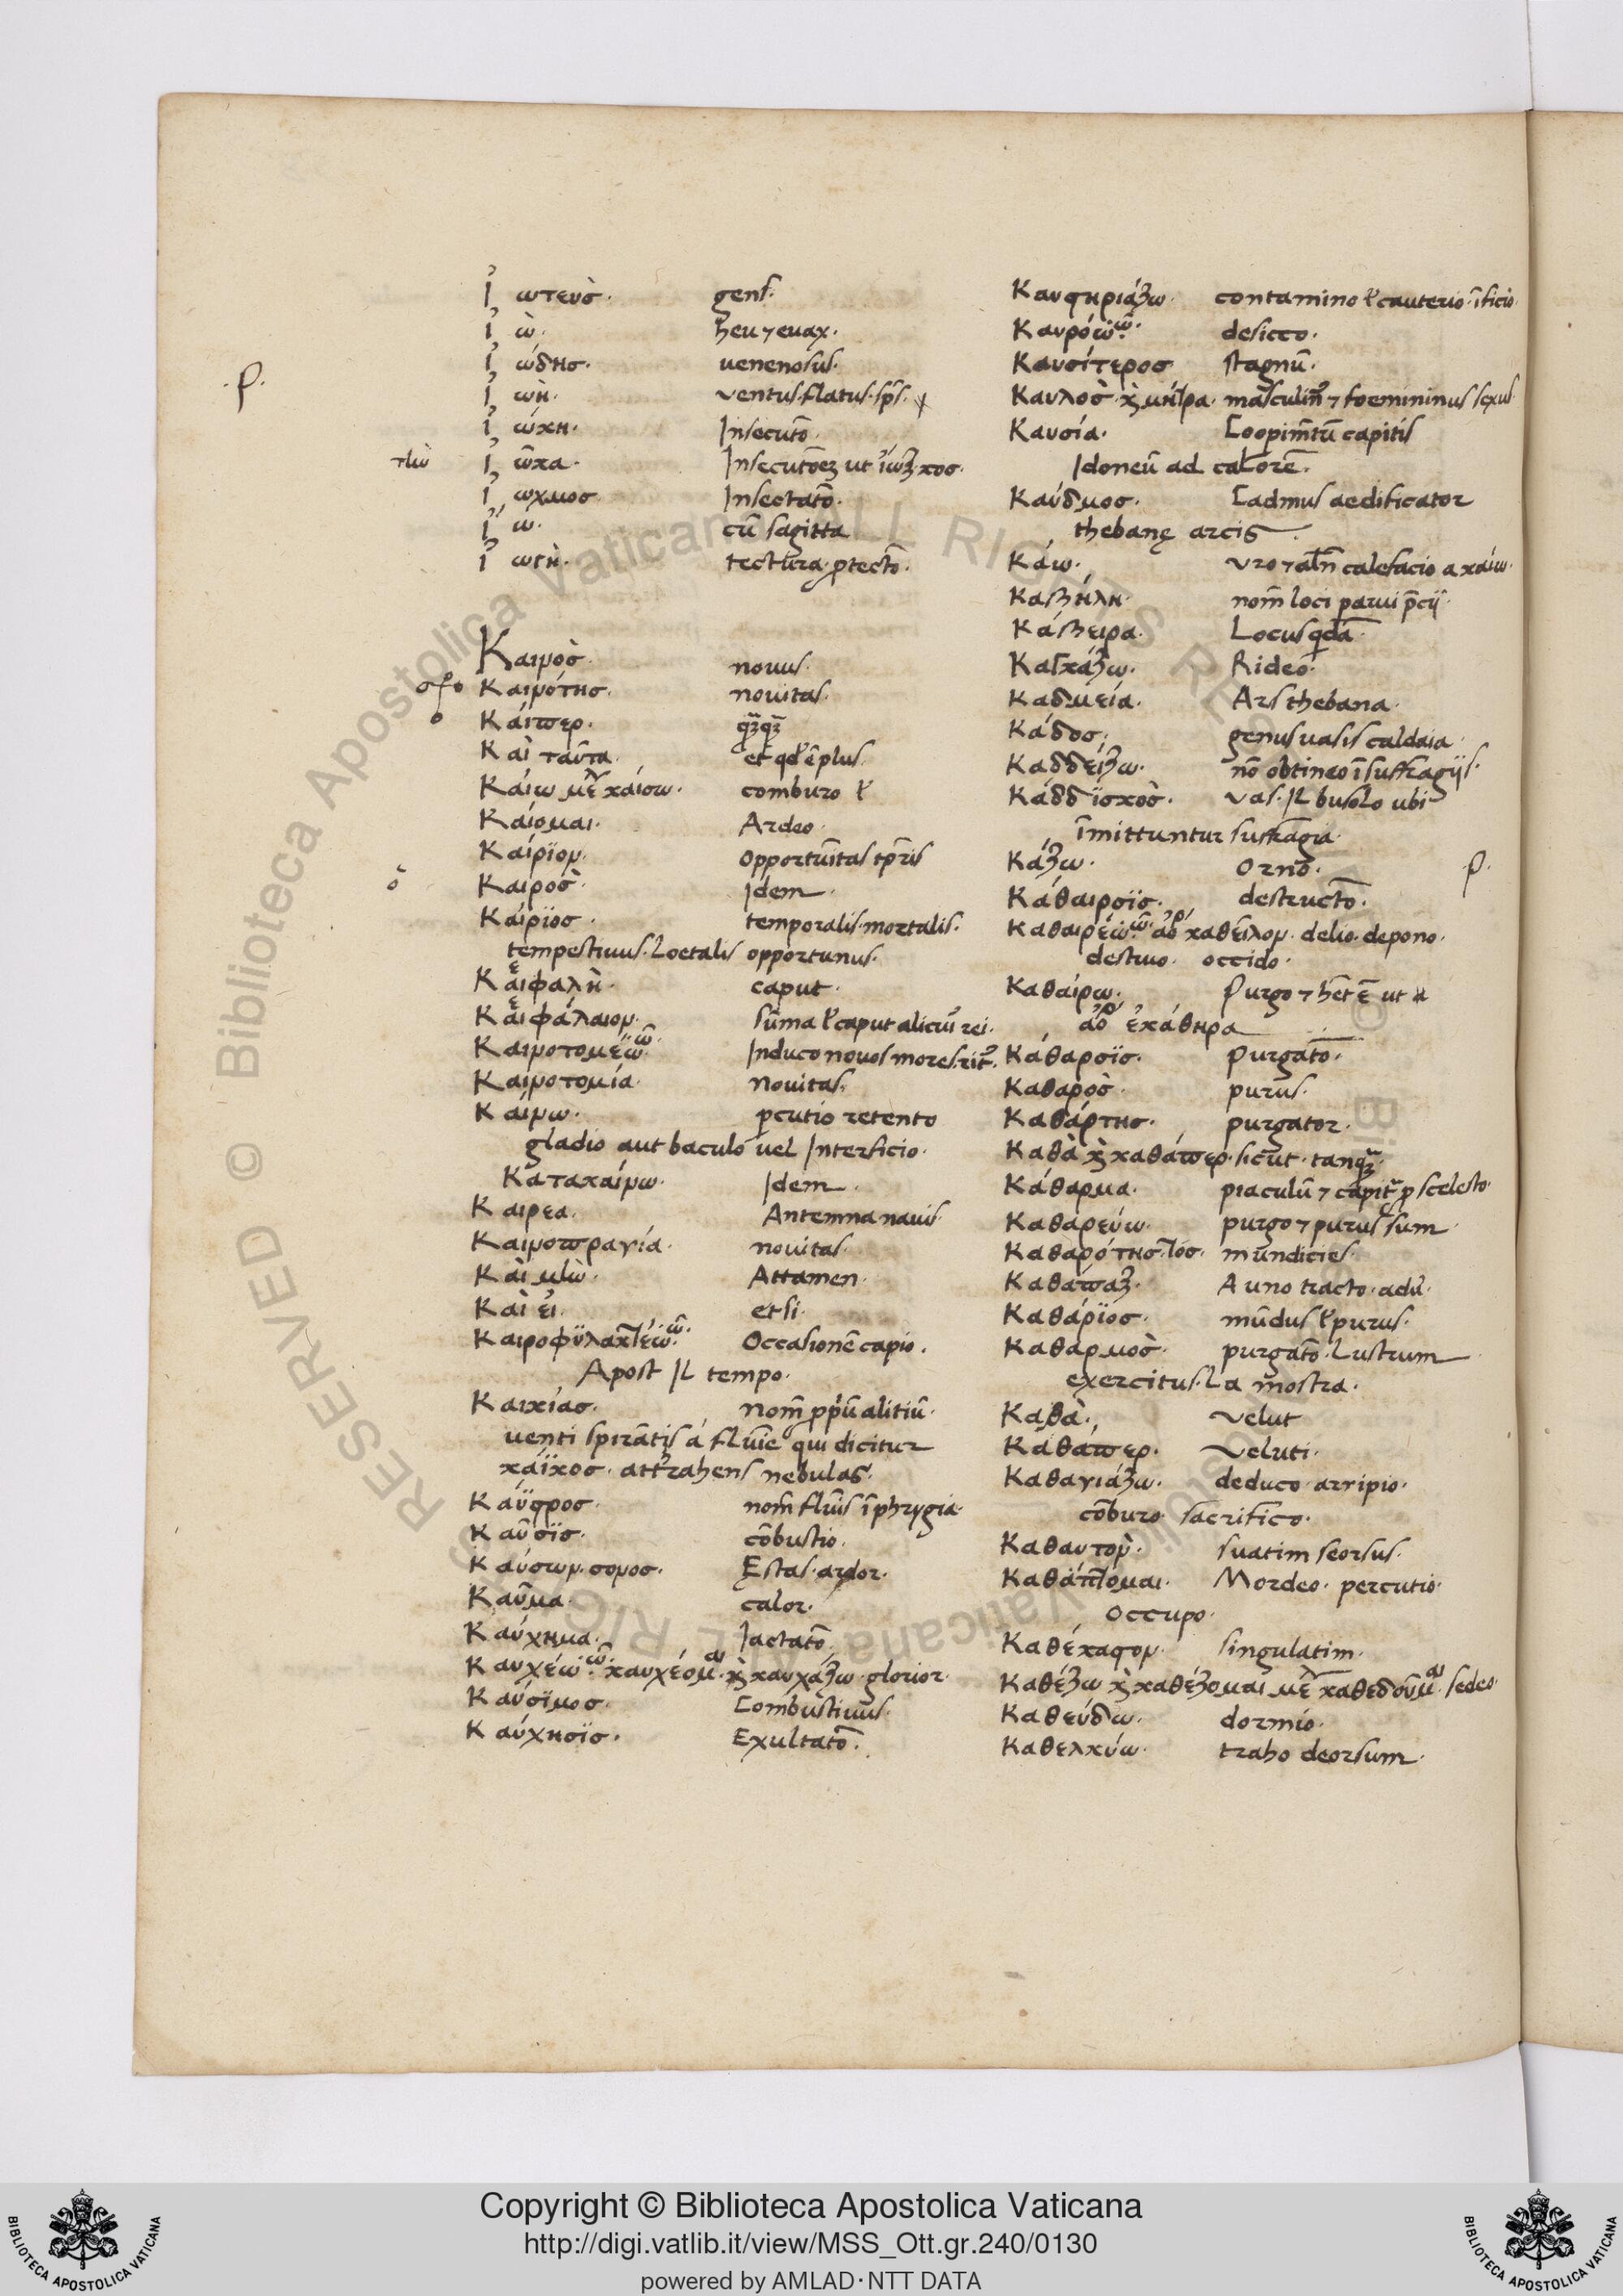 Ἰ ωτευσ. gens.
Ἰ ὼ. heu ⁊ euax.
Ἰ ώδησ. uenenosus.
.ρ.
Ἰ ωὴ. ventus. flatus. sp̄s.
Ἰ ώκη. Insecutō.
τὴν
Ἰ ῶκα. Insecutōeȝ ut
Ἰ ωχμοσ. Insectatō.
Ἰ ω. cū sagitta
Ἰ ωγὴ. tectura. ꝓtectō.
Καινὸσ. nouus.
Καινότησ. nouitas.
Κάιπερ.
Καὶ ταῦτα. et qđ ē plus.
Κάιω κάισω. comburo ł
Κάιομαι. Ardeo.
Κάιρϊον. opportūitas tp̄ris
ὁ
Καιροσ. Idem.
Κάιρϊοσ. temporalis. mortalis.
tempestiuus. Loetalis opportunus.
Κεφαλὴ. caput.
Κεφάλαιον. sūma ł caput alicui᾽ rei.
Καινοτομέω.ῶ. Induco nouos mores.
Καινοτομία. nouitas.
Κάινω. ꝑcutio retento
gladio aut baculo uel Interficio.
Κατακάινω. Idem.
Καιρεα. Antemna nauis.
Καινοπραγία. nouitas.
Κὰι μὴν. Attamen.
Κὰι ἐι. et si.
Καιροφϋλακτέω.ῶ. Occasionē capio.
Apost Il tempo.
Καικίασ. nom̄ ꝓpū alitiū.
uenti spirātis á flūie qui dicitur
κάϊκοσ. attrahens nebulas.
Κάϋστροσ. nom̄ flūis ī phrygia.
Καῦσϊσ. cōbustio.
Καύσων. σονοσ. Ęstas. ardor.
Καῦμα. calor.
Καύχημα. Iactatō.
Καυχέω.ῶ. καυχέομαι. καὶ καυχάζω. glorior.
Καύσϊμοσ. Combustiuus.
Καύχησϊσ. Exultatō.
Καυστηριάζω. contamino ł cauterio. īficio.
Καυρόω.ῶ. desicco.
Καυσίτεροσ stagnū.
Καυλοσ. καὶ μήτρα. masculin᾽ ⁊ foemininus sexus.
Καυσία. Coopim̄tū capitis
Idoneū ad calorē.
Καύδμοσ. Cadmus aedificator
thebanę arcis.
Κάω. vro ⁊ calefacio a κάιω.
Καβήλη. nom̄ loci parui p̄cij.
Κάβειρα. Locus qdā.
Καγκάζω. Rideo.
Καδμεία. Ars thebana.
Κάδοσ. genus uasis caldaia.
Καδδείζω. nō obtineo ī suffragijs.
Κάδδϊσκοσ. vas. Il busolo ubi
īmittuntur suffragia.
Κάζω. Orno.
ρ.
Κάθαιρσϊσ. destructō.
Καθαιρέω.ῶ. καθεῖλον. deleo. depono.
destruo. occido.
Καθάιρω. Purgo ⁊ ut
ἐκάθηρα
Κάθαρσϊσ. Purgatō.
Καθαρὸσ. purus.
Καθάρτησ. purgator.
Καθὰ καὶ καθάπερ. sicut. tanq̄ȝ.
Κάθαρμα. piaculū ⁊ ꝓ scelesto.
Καθαρεύω. purgo ⁊ purus sum.
Καθαρότησ. mundicies.
Καθάπαξ. A uno tracto. adu̅.
Καθάρϊοσ. mūdus ł purus.
Καθαρμὸσ. purgatō. Lustrum
exercitus. La mostra.
Καθὰ. velut
Καθάπερ. Veluti.
Καθαγιάζω. deduco. arripio.
cōburo. sacrifico.
Καθαυτον. suatim seorsus.
Καθάπτομαι. Mordeo. percutio.
Occupo.
Καθέκαστον. singulatim.
Καθέζω καὶ καθέζομαι καθεδοῦμαι. sedeo.
Καθεύδω. dormio.
Καθελκύω. traho deorsum.
RESERVED © Biblioteca Apostolica Vaticana ALL RIGHTS RESERVED
Copyright © Biblioteca Apostolica Vaticana
http://digi.vatlib.it/view/MSS_Ott.gr.240/0130
powered by AMLAD·NTT DATA
BIBLIOTECA APOSTOLICA VATICANA
BIBLIOTECA APOSTOLICA VATICANA